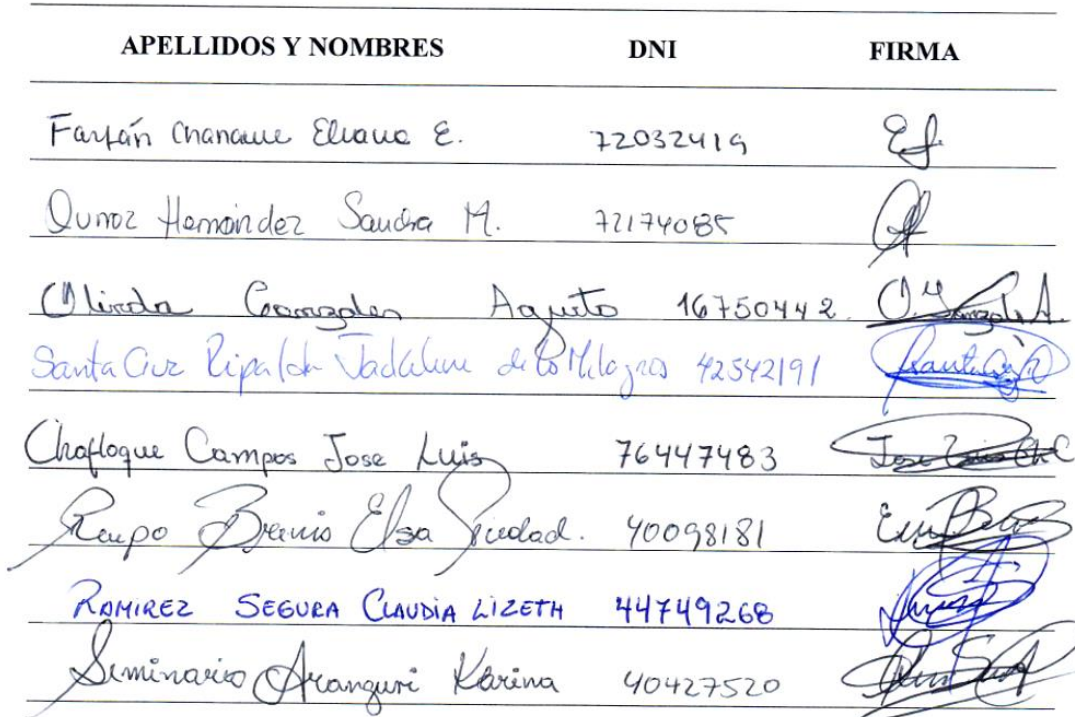 APELLIDOS Y NOMBRES DNI FIRMA
Farfán Chaname Eliana E. 72032419 Ef
Quiroz Hernández Sandra M. 72174085
Olinda Gonzales Aquito 16750442 O. Gonzales A.
Santa Cruz Ripalda Jackeline de los Milagros 42542191
Chafloque Campos Jose Luis 76447483 Jose Luis Ch C
Raupo Brenis Elsa Piedad. 40098181
RAMIREZ SEGURA CLAUDIA LIZETH 44749268
Seminario Aranguri Karina 40427520